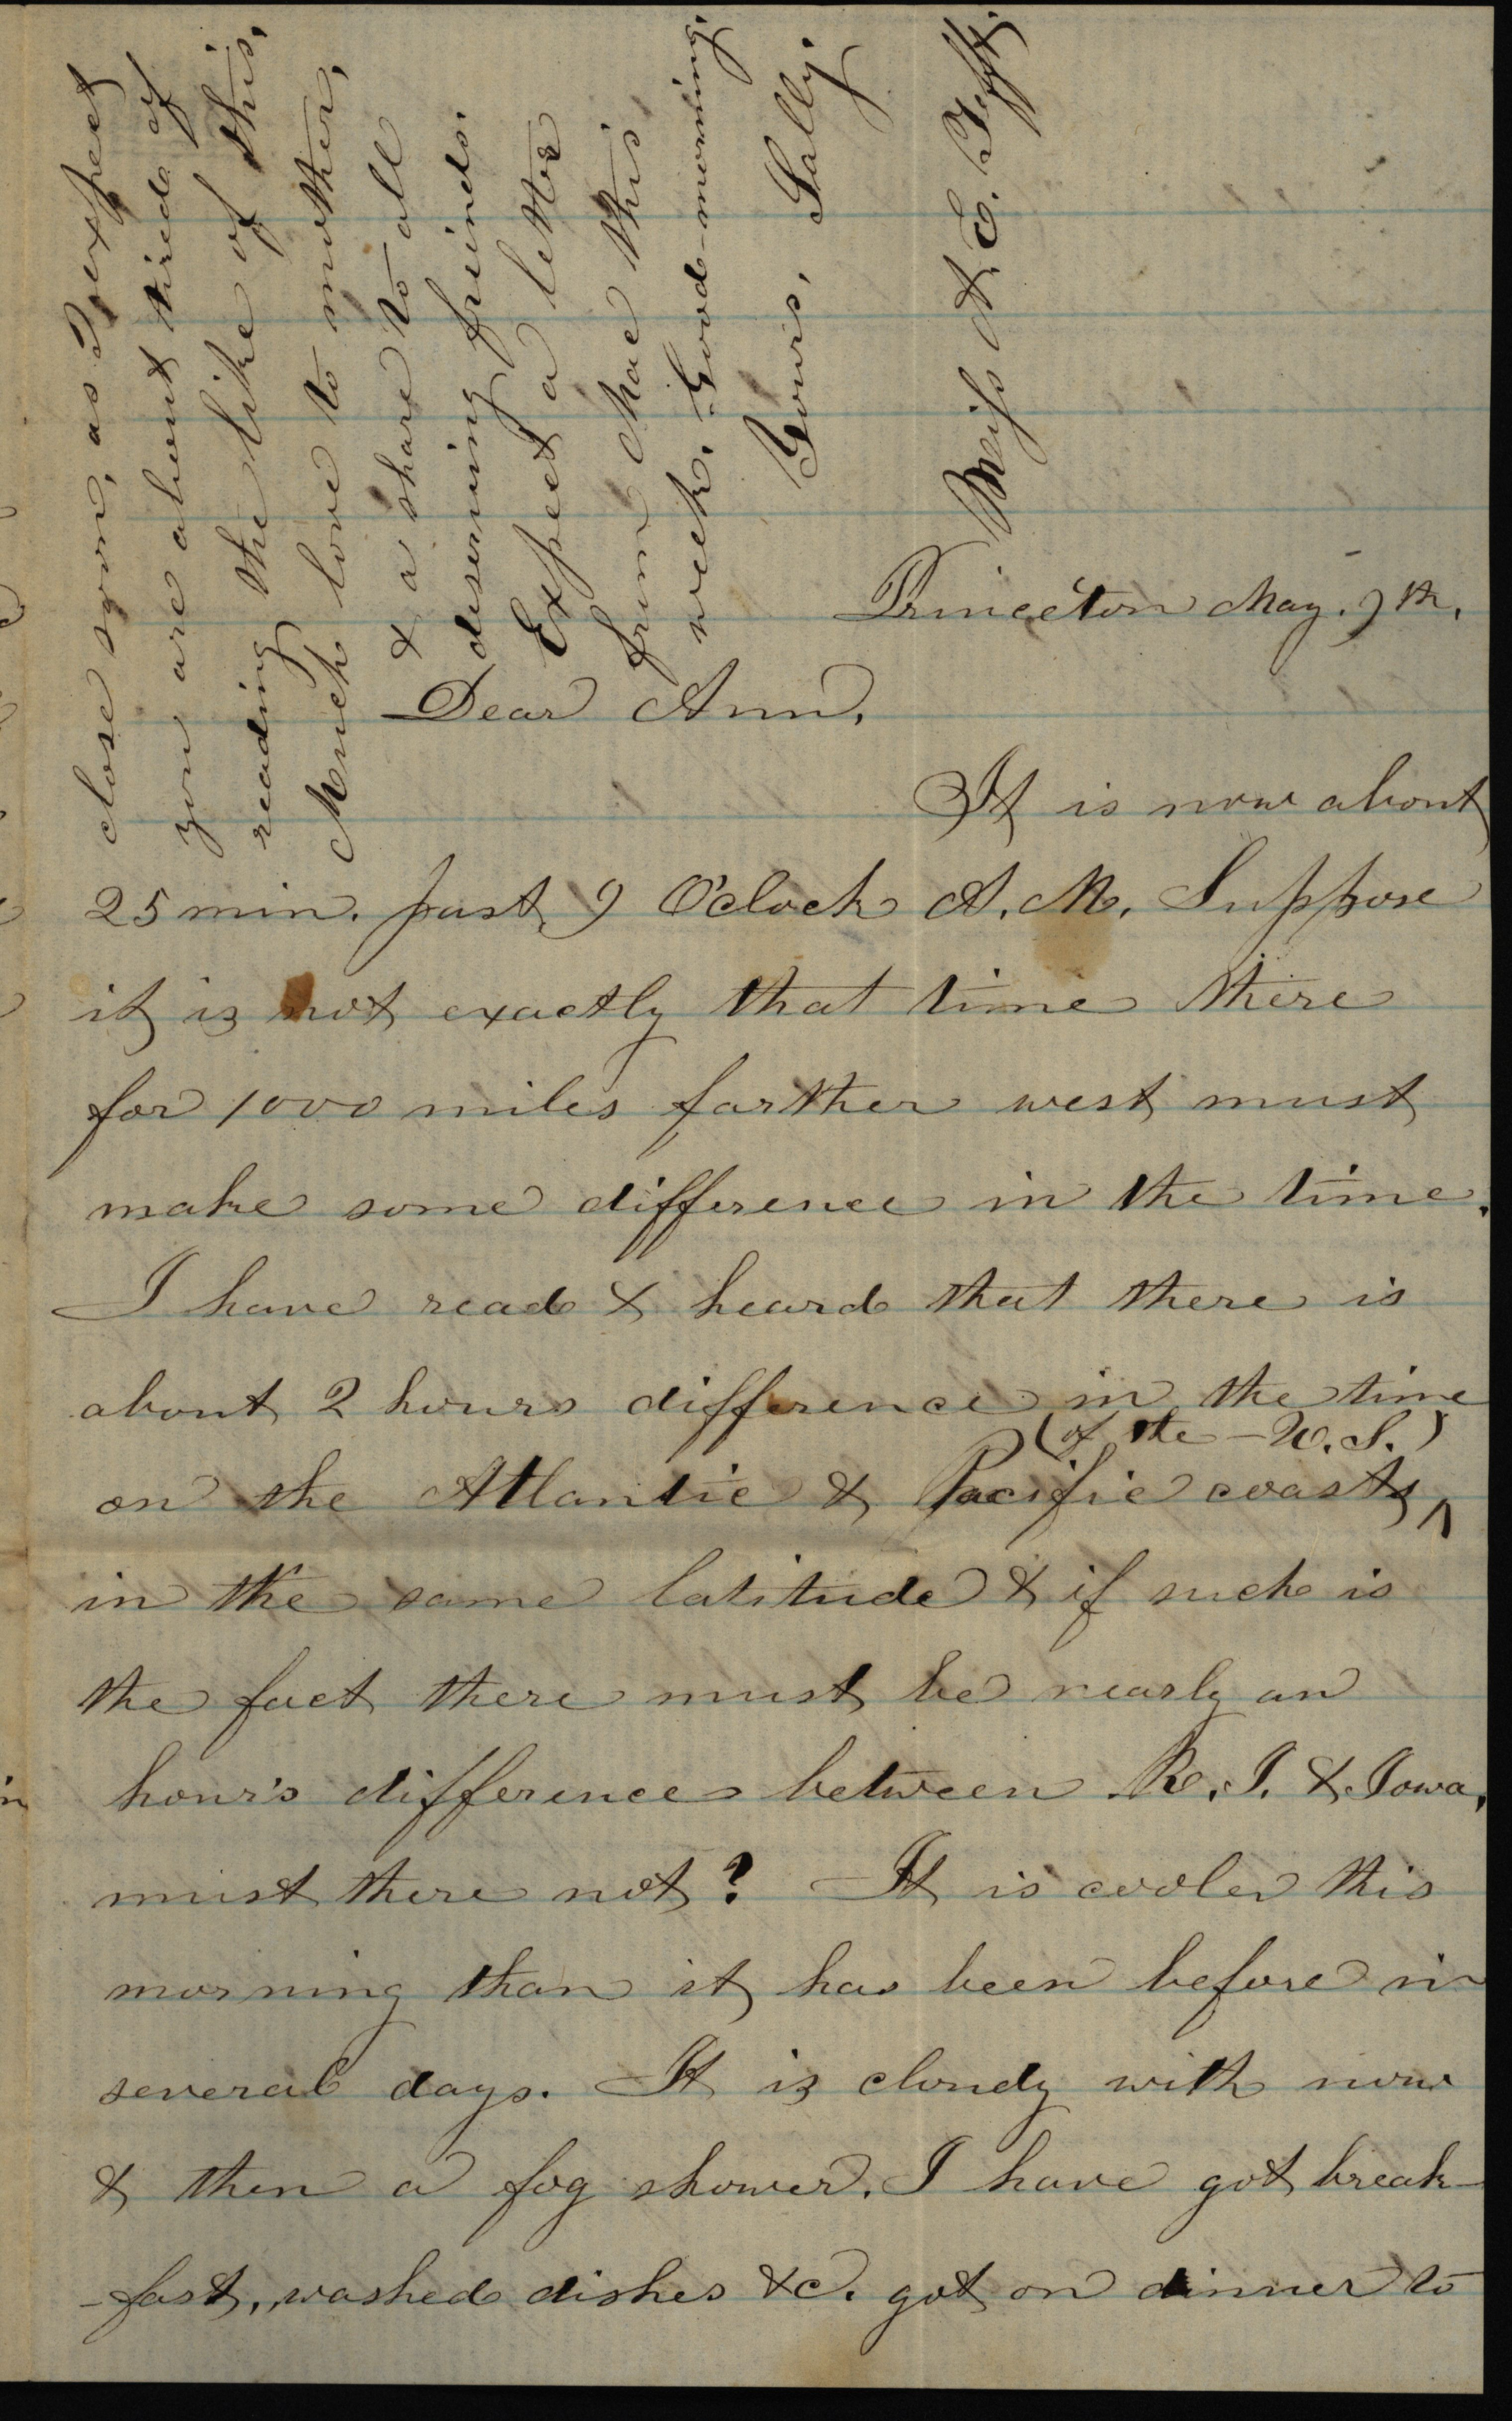 Princeton May. 9th.
Dear Ann,
It is now about
25 min. past 9 O'clock A.M. Suppose
it is not exactly that time there
for 1000 miles farther west must
make some difference in the time.
I have read & heard that there is
about 2 hours difference in the time
(of the U.S.)
on the Atlantic & Pacific coasts ^
in the same latitude & if such is
the fact there must be nearly an
hour's difference between R.I. & Iowa,
must there not? It is cooler this
morning than it has been before in
several days. It is cloudy with now
& then a fog shower. I have got break-
-fast, washed dishes &c. got on dinner to
close soon, as I expect
you are about tired of
reading the like of this.
Much love to mother,
& a share to all
deserving friends.
Expect a letter
from Mae this
week. Good-morning.
Yours, Sally.
Miss A. E. Tefft.